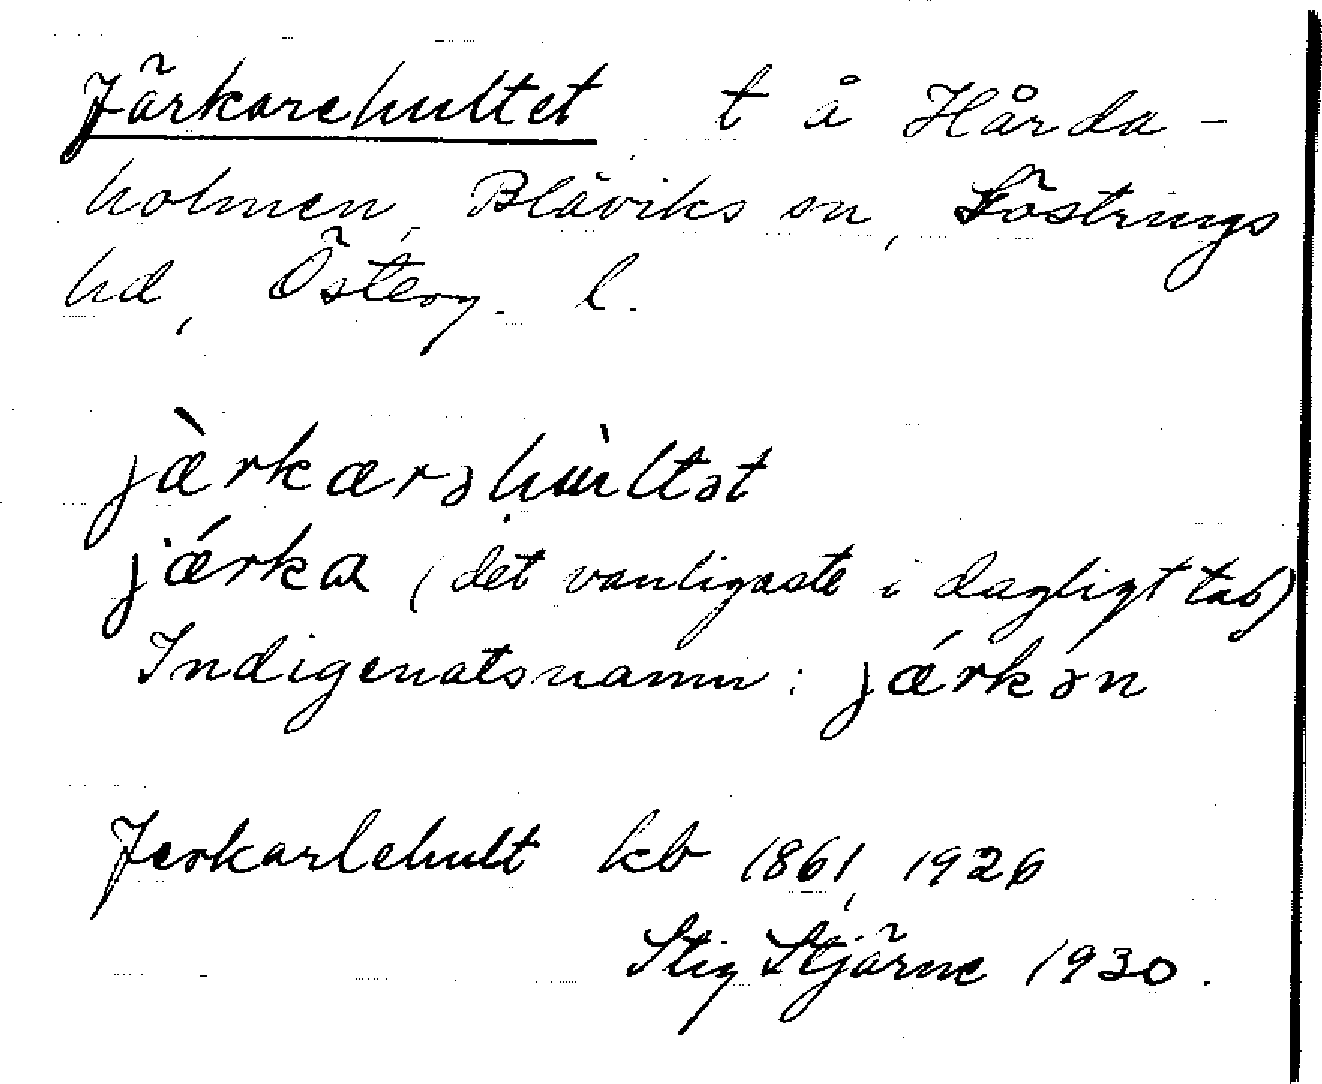 Järkarehultet t å Hårda-
holmen, Blåviks sn, Göstrings
hd, Österg. l.
jæ̀rkarəhùltət
jǽrka (det vanligaste i dagligt tal)
Indigenatsnamn: jǽrkən
Jerkarlehult kb 1861, 1926
Stig Stjärne 1930.